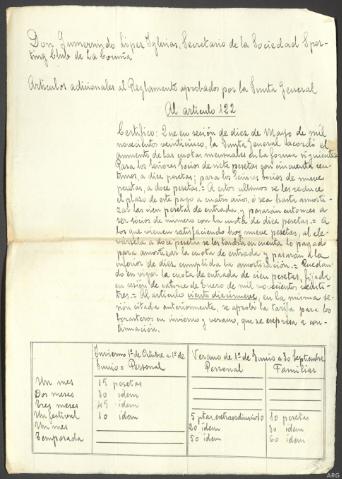 Don Gumersindo López Iglesias, Secretario de la Sociedad Spor-
ting Club de La Coruña
Artículos adicionales al Reglamento aprobados por la Junta General
Al artículo 122
Certifico: Que en sesión de diez de Mayo de mil
novecientos veinticinco, la Junta General acordó el
aumento de las cuotas mensuales en la forma siguiente:
Para los señores socios de siete pesetas con cincuenta cen-
timos, a diez pesetas; para los señores socios de nueve
pesetas, a doce pesetas. = A estos ultimos se les reduce
el plazo de este pago a cuatro años, o sea hasta amorti-
zar las cien pesetas de entrada y pasarán entonces a
ser socios de número con la cuota de diez pesetas. = A
los que vienen satisfaciendo hoy nueve pesetas, al ele-
varsela a doce pesetas se les tendrá en cuenta lo pagado
para amortizar la cuota de entrada y pasarán a la
inferior de diez cumplida la amortización. = Quedan-
do en vigor la cuota de entrada de cien pesetas, fijada
en sesión de catorce de Enero de mil novecientos veinti-
tres. = Al artículo ciento diecinueve, en la misma se-
sión citada anteriormente, se aprobó la tarifa para los
forasteros en invierno y verano, que se expresa a con-
tinuación.
Invierno 1º de Octubre a 1º de Junio = Personal
Verano de 1º de Junio a 30 Septiembre
Personal Familias
Un mes 15 pesetas
Dos meses 30 idem
Tres meses 45 idem
Un festival 10 idem 5 ptas extraordinario 10 pesetas
Un mes 20 idem 30 idem
Temporada 50 idem 60 idem
ARG